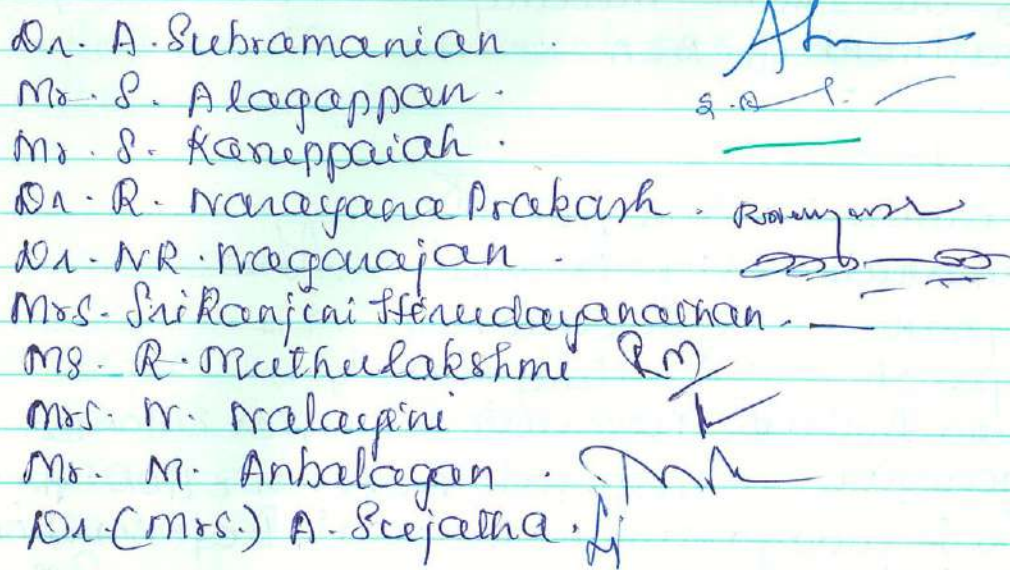 Dr. A. Subramanian.
Mr. S. Alagappan.
Mr. S. Karuppaiah.
Dr. R. Narayana Prakash.
Dr. NR. Nagarajan.
Mrs. SriRanjini
Ms. R. Muthulakshmi RM
Mrs. N. Nalayini
Mr. M. Anbalagan.
Dr. (Mrs.) A. Sujatha.